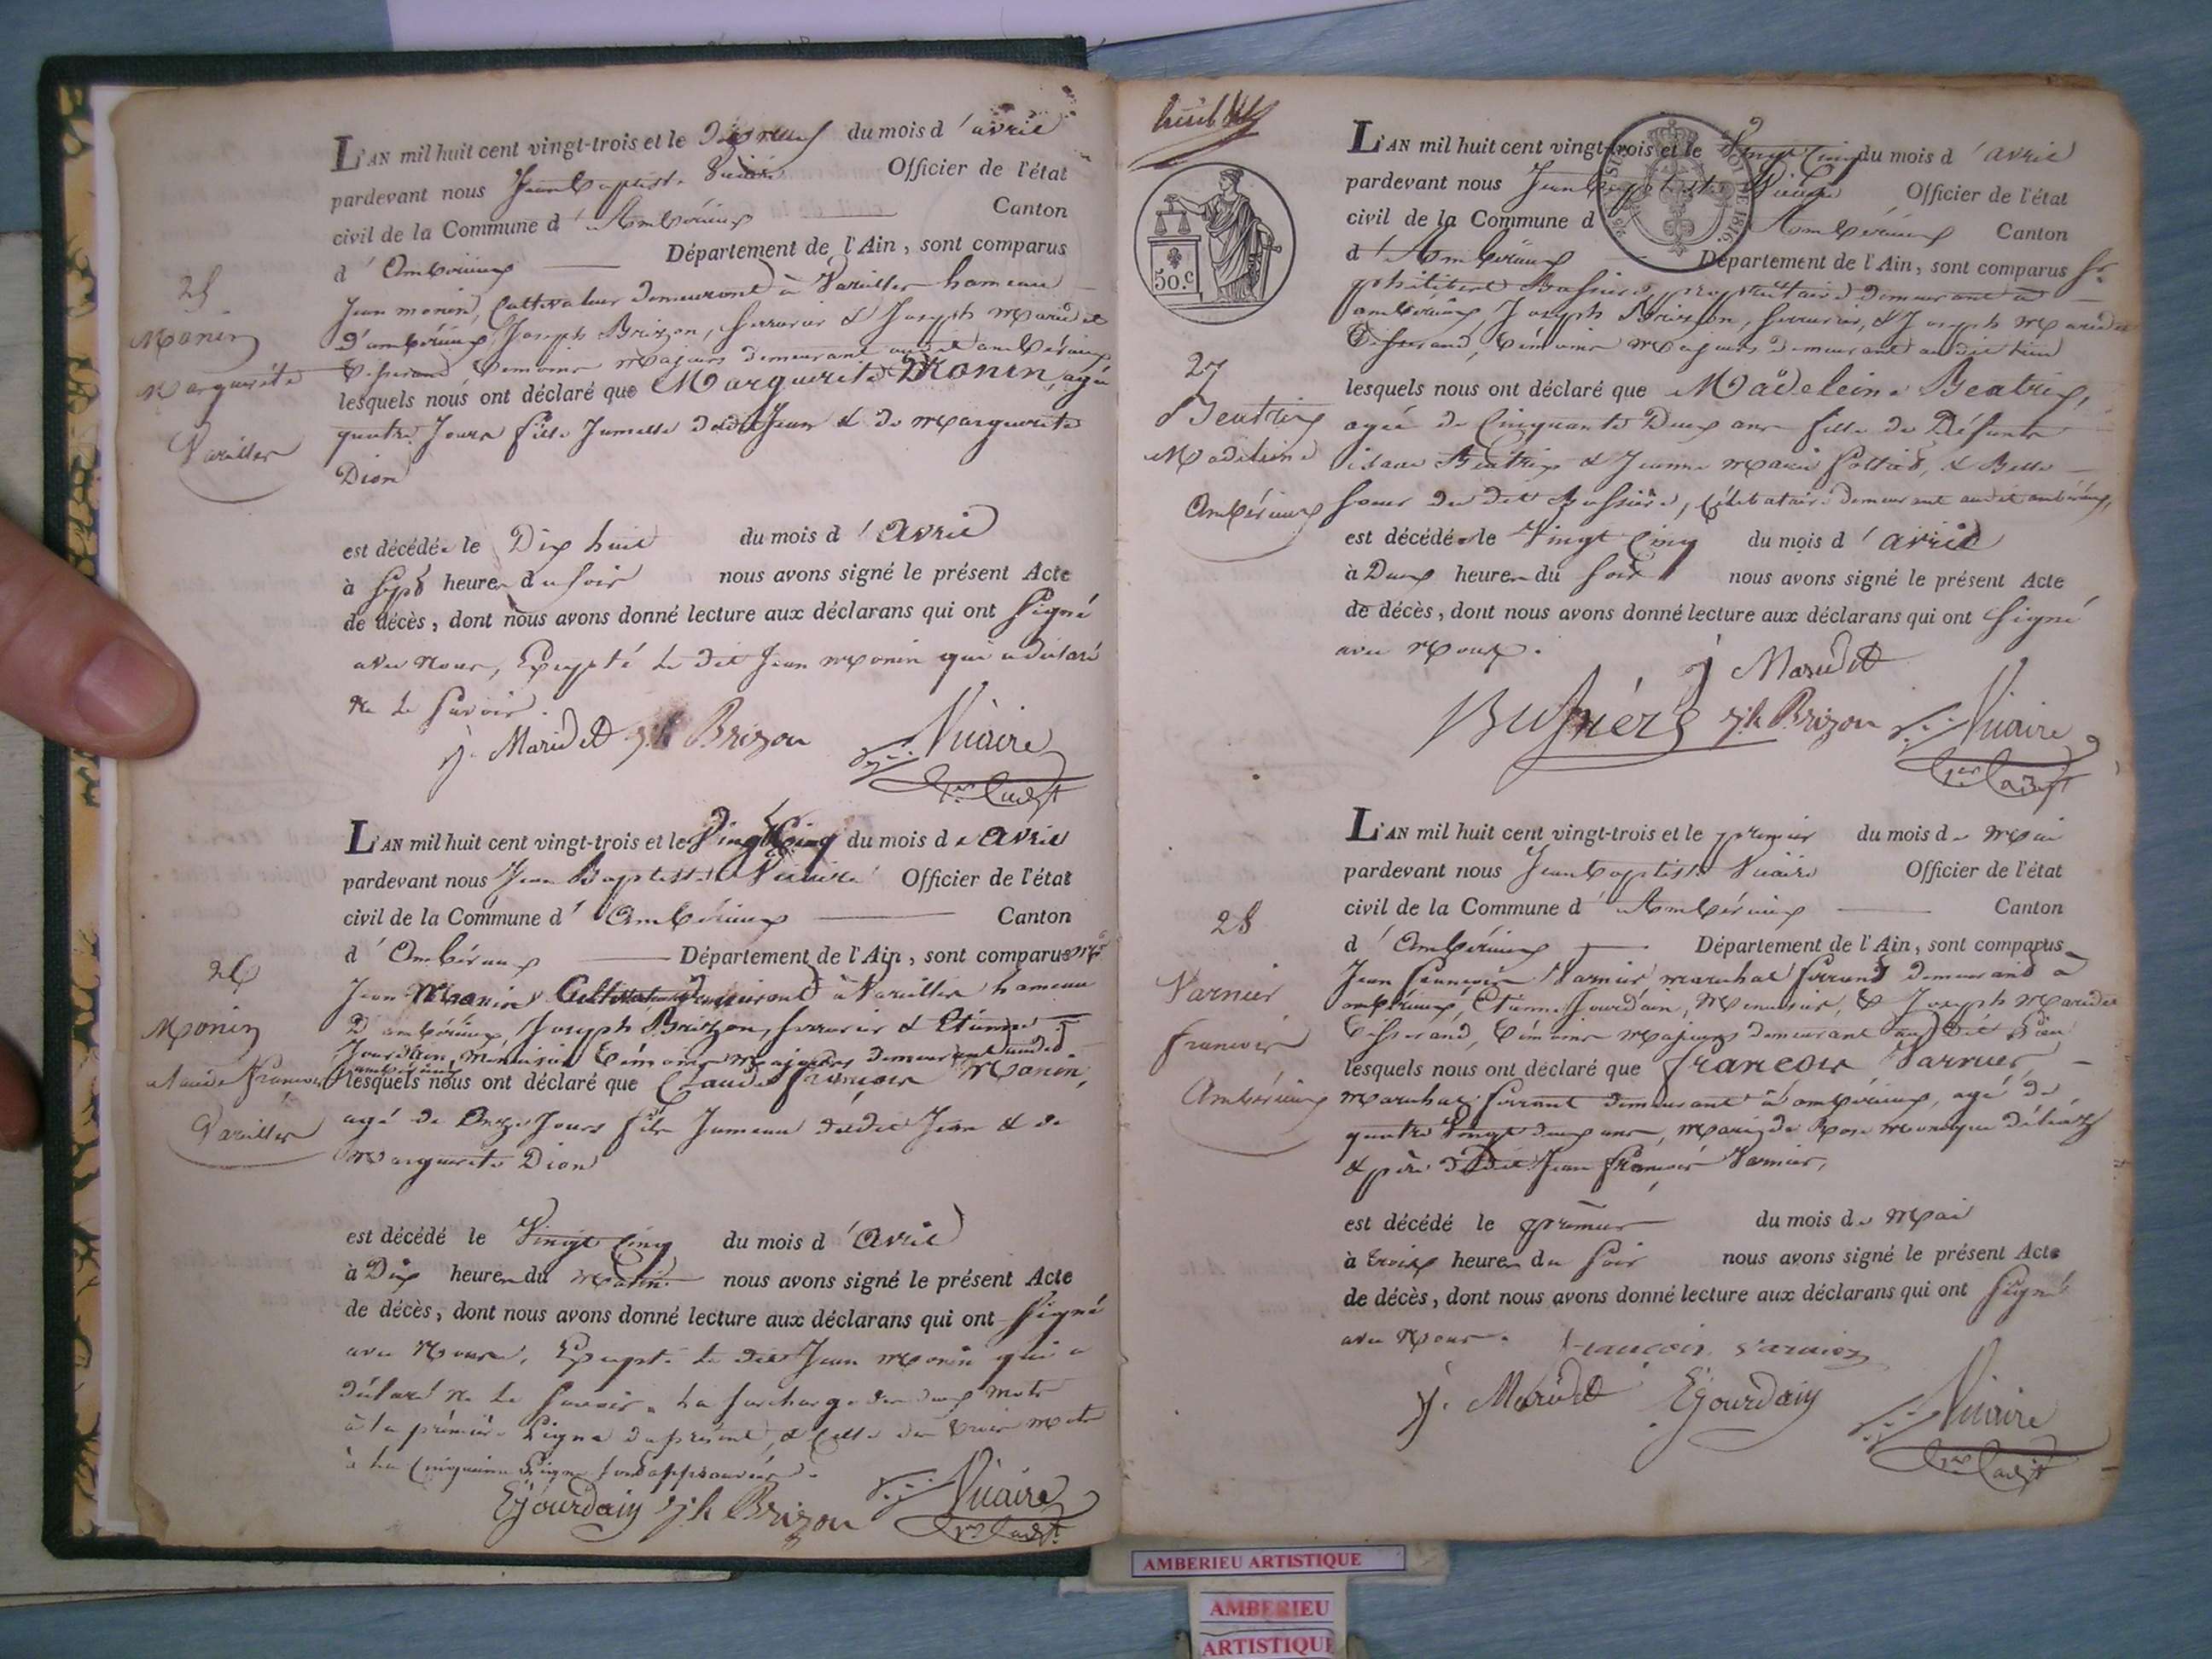 L'AN mil huit cent vingt-trois et le Dix neuf du mois d'avril
pardevant nous Jean Baptiste Vicaire Officier de l'état
civil de la Commune d'Ambérieux Canton
d'Ambérieux Département de l'Ain, sont comparus
25
Monin
Marguerite
Vareilles
Jean monin, Cultivateur demeurant à Vareilles hameau
D'ambérieux, Joseph Brizon, serrurier & Joseph Maridet
Tisserand témoins majeurs demeurant audit ambérieux
lesquels nous ont déclaré que Marguerite Monin, agée
quatre Jours fille Jumelle dudit Jean & de Marguerite
Dion
est décédée le Dix huit du mois d'avril
à Sept heures du soir nous avons signé le présent Acte
de décès, dont nous avons donné lecture aux déclarans qui ont Signé
avec Nous, Excepté le dit Jean Monin qui a déclaré
Ne le Savoir.
J. Maridet Jh Brizon Vicaire
L'AN mil huit cent vingt-trois et le Vingt Cinq du mois de avril
pardevant nous Jean Baptiste Vicaire Officier de l'état
civil de la Commune d'Ambérieux Canton
d'Ambérieux Département de l'Ain, sont comparus
26
Monin
Claude François
Vareilles
Jean Monin Cultivateur Demeurant à Vareilles hameau
D'ambérieux, Joseph Brizon, serrurier & Etienne
Jourdain, Menuisier témoins Majeurs demeurant audit
ambérieux
lesquels nous ont déclaré que Claude françois Monin,
agé de Onze Jours fils Jumeau dudit Jean & de
Marguerite Dion
est décédé le Vingt Cinq du mois d'Avril
à Dix heures du Matin nous avons signé le présent Acte
de décès, dont nous avons donné lecture aux déclarans qui ont Signé
avec Nous, Excepté le dit Jean Monin qui a
déclaré Ne le Savoir. La surcharge des deux Mots
à la première Ligne du présent, & Celle des trois Mots
à la Cinquième Ligne sont approuvées.
EJourdain Jh Brizon Vicaire
50.C
L'AN mil huit cent vingt-trois et le Vingt Cinq du mois d'avril
pardevant nous Jean Baptiste Vicaire Officier de l'état
civil de la Commune d'Ambérieux Canton
d'Ambérieux Département de l'Ain, sont comparus Sr.
27
Beatrix
Madeleine
Ambérieux
philibert Bussière, propriétaire demeurant à
ambérieux Joseph Brizon, serrurier, & Joseph Maridet
Tisserand, témoins Majeurs demeurant audit lieu
lesquels nous ont déclaré que Madeleine Beatrix,
agée de Cinquante Deux ans fille de Défunts
Beatrix & Jeanne Marie & Belle
Soeur du dit Bussière, Célibataire demeurant audit ambérieux,
est décédée le Vingt Cinq du mois d'avril
à Deux heures du Soir nous avons signé le présent Acte
de décès, dont nous avons donné lecture aux déclarans qui ont Signé
avec Nous.
J Maridet
Bussière Jh Brizon Vicaire
L'AN mil huit cent vingt-trois et le premier du mois de Mai
pardevant nous Jean Baptiste Vicaire Officier de l'état
civil de la Commune d'Ambérieux Canton
d'Ambérieux Département de l'Ain, sont comparus
28
Varnier
françois
Ambérieux
Jean François Varnier marechal ferrand demeurand à
ambérieux, Etienne Jourdain, Menuisier, & Joseph Maridet
Tisserand, témoins Majeurs demeurant audit Lieu
lesquels nous ont déclaré que françois Varnier,
Marechal ferrant demeurant à ambérieux, agé de
quatre Vingt deux ans, Mari de Rose
& père dudit Jean françois Varnier,
est décédé le premier du mois de Mai
à trois heures du Soir nous avons signé le présent Acte
de décès, dont nous avons donné lecture aux déclarans qui ont Signé
avec Nous. francois Varnier
J. Maridet EJourdain Vicaire
AMBERIEU ARTISTIQUE
AMBERIEU
ARTISTIQUE